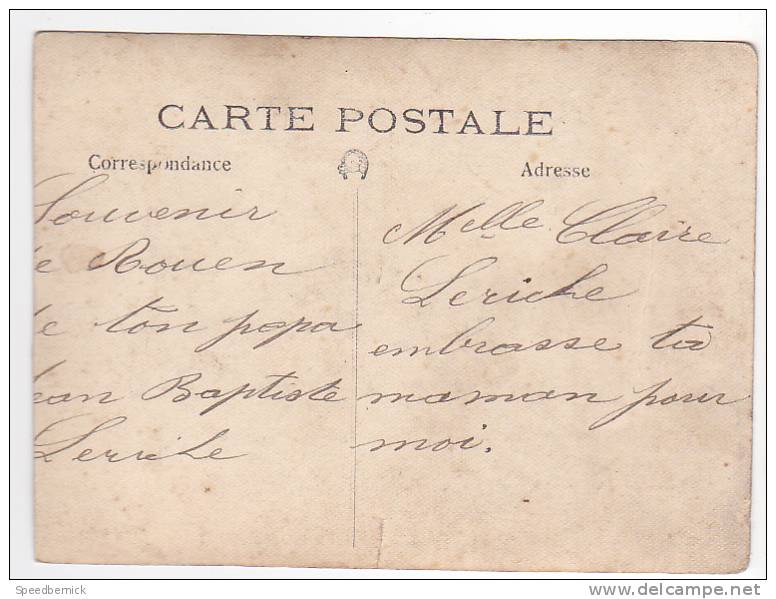 CARTE POSTALE
Correspondance
Adresse
Souvenir
de Rouen
de ton papa
Jean Baptiste
Leriche
Melle Claire
Leriche
embrasse ta
maman pour
moi.
Speedbernick
delcampe.net